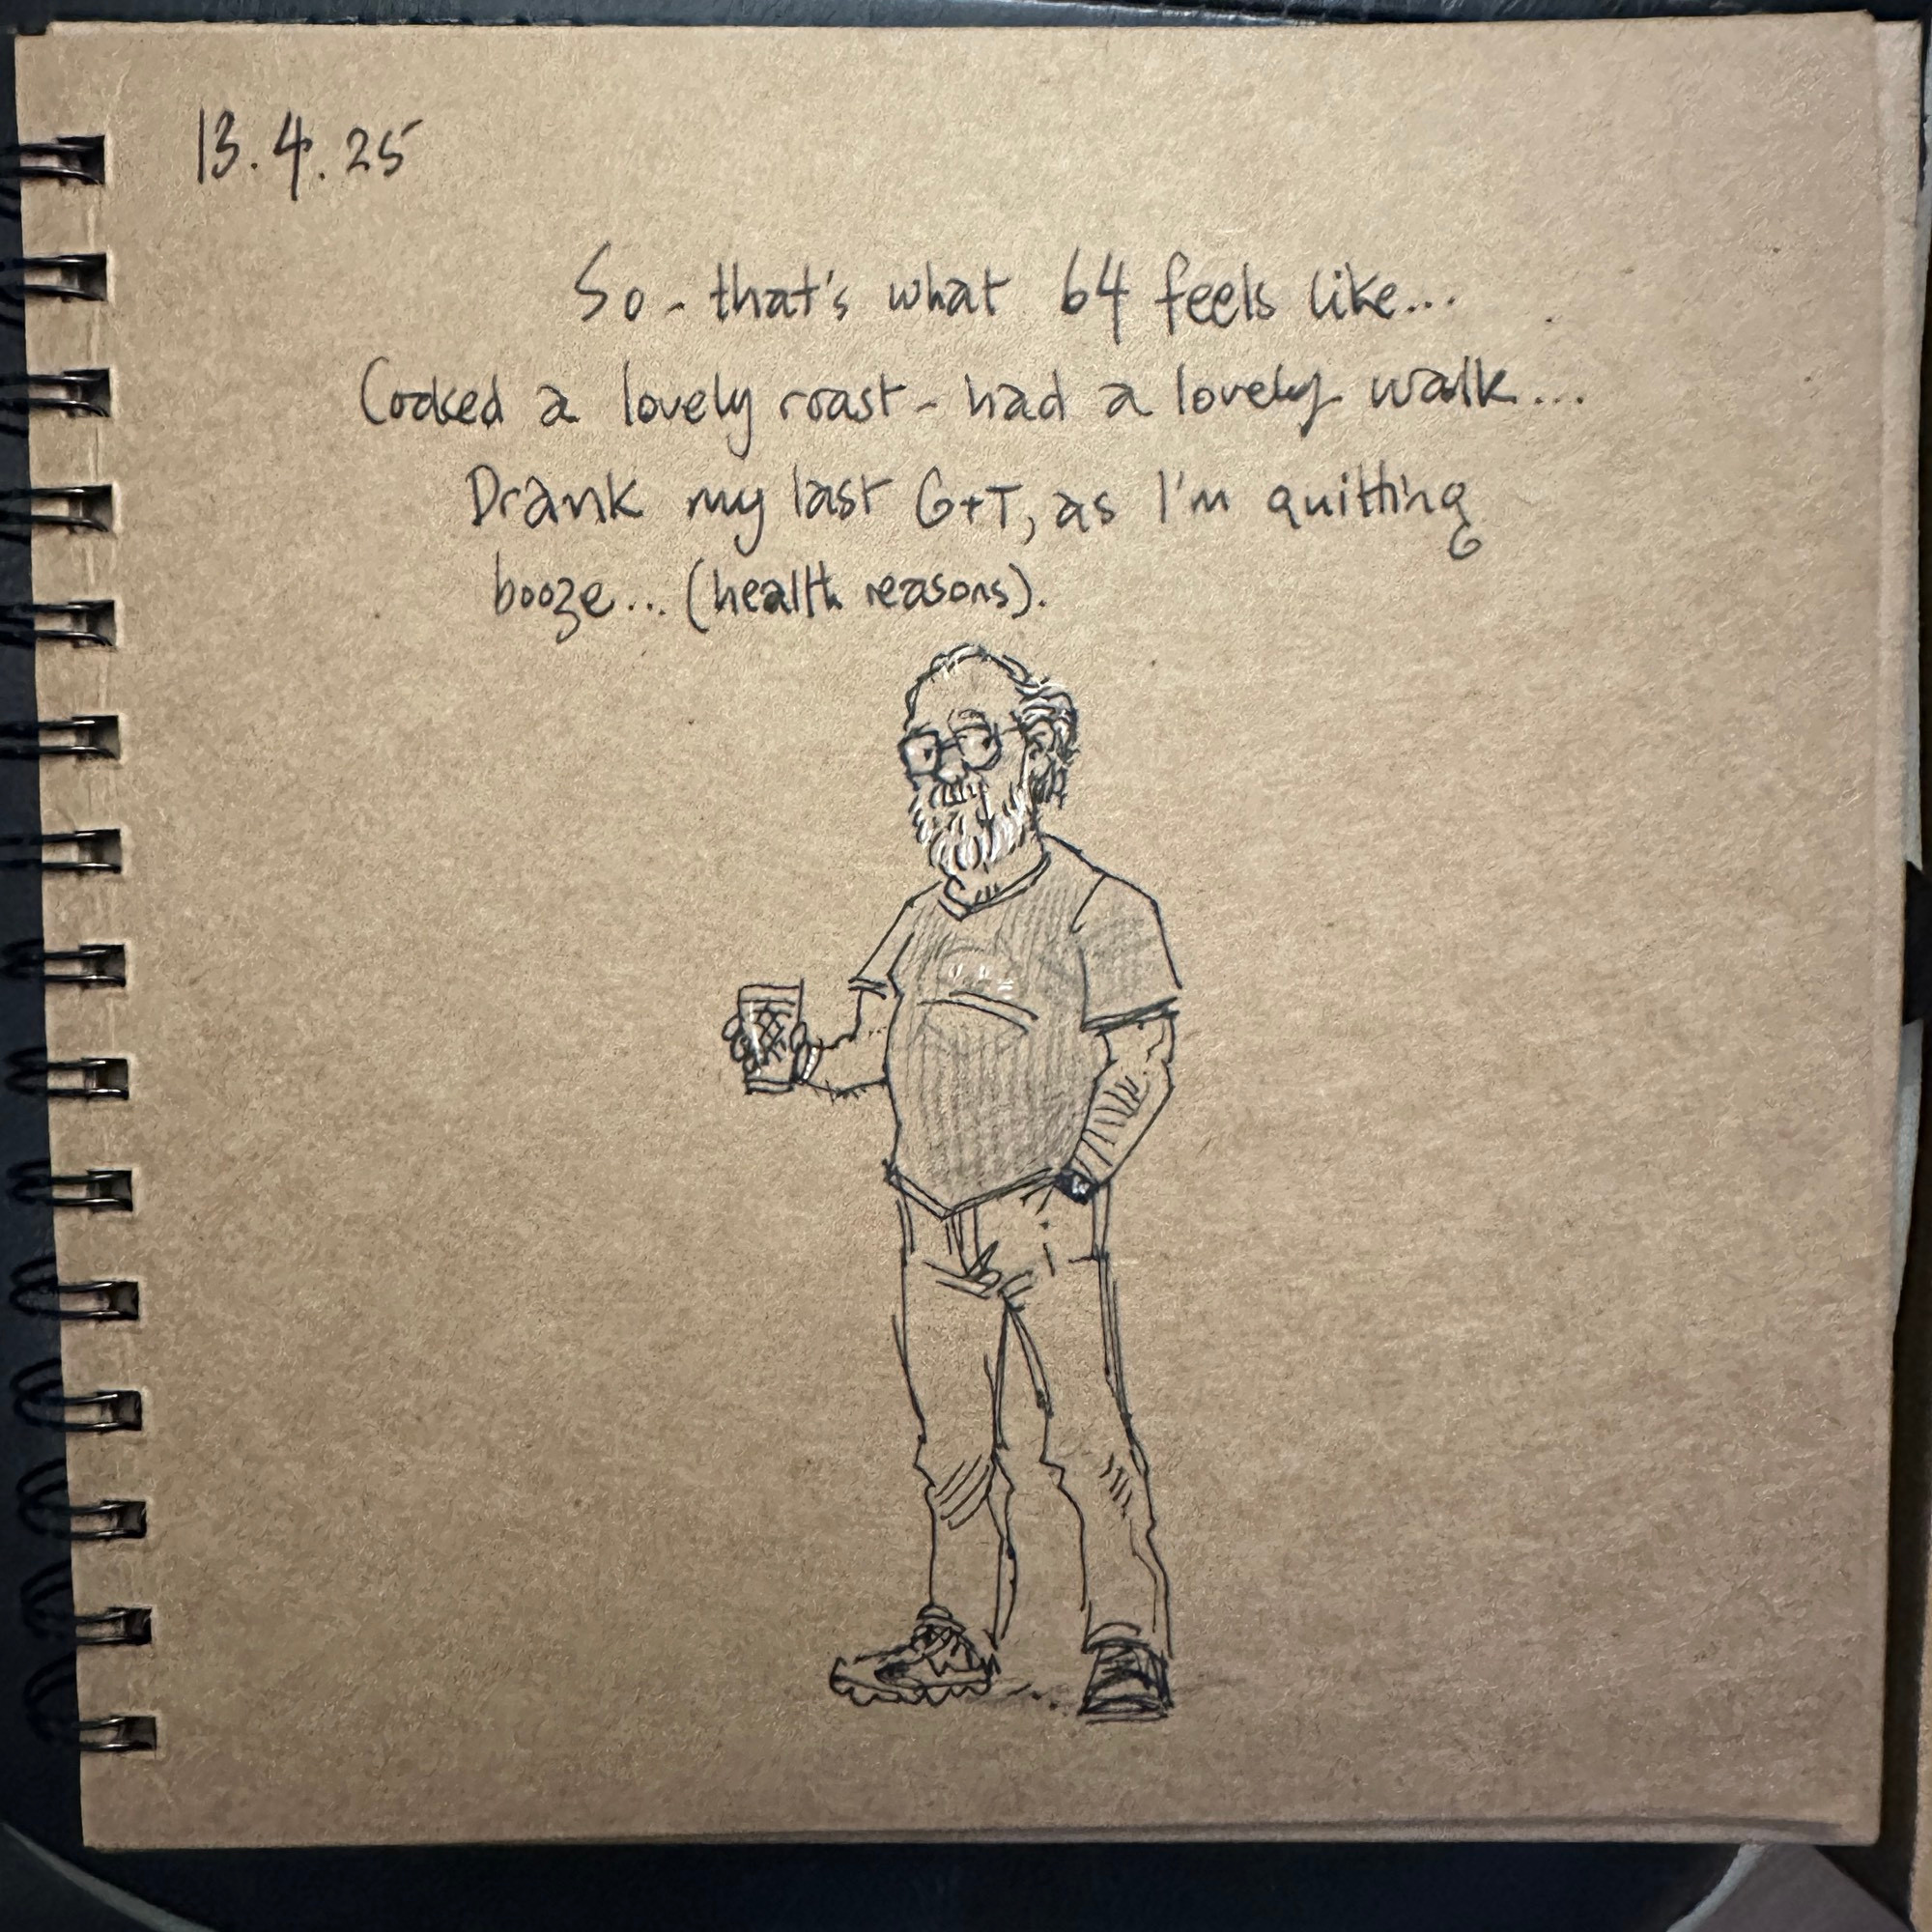 13.4.25
So - that's what 64 feels like...
Cooked a lovely roast - had a lovely walk...
Drank my last G+T, as I'm quitting
booze... (health reasons).